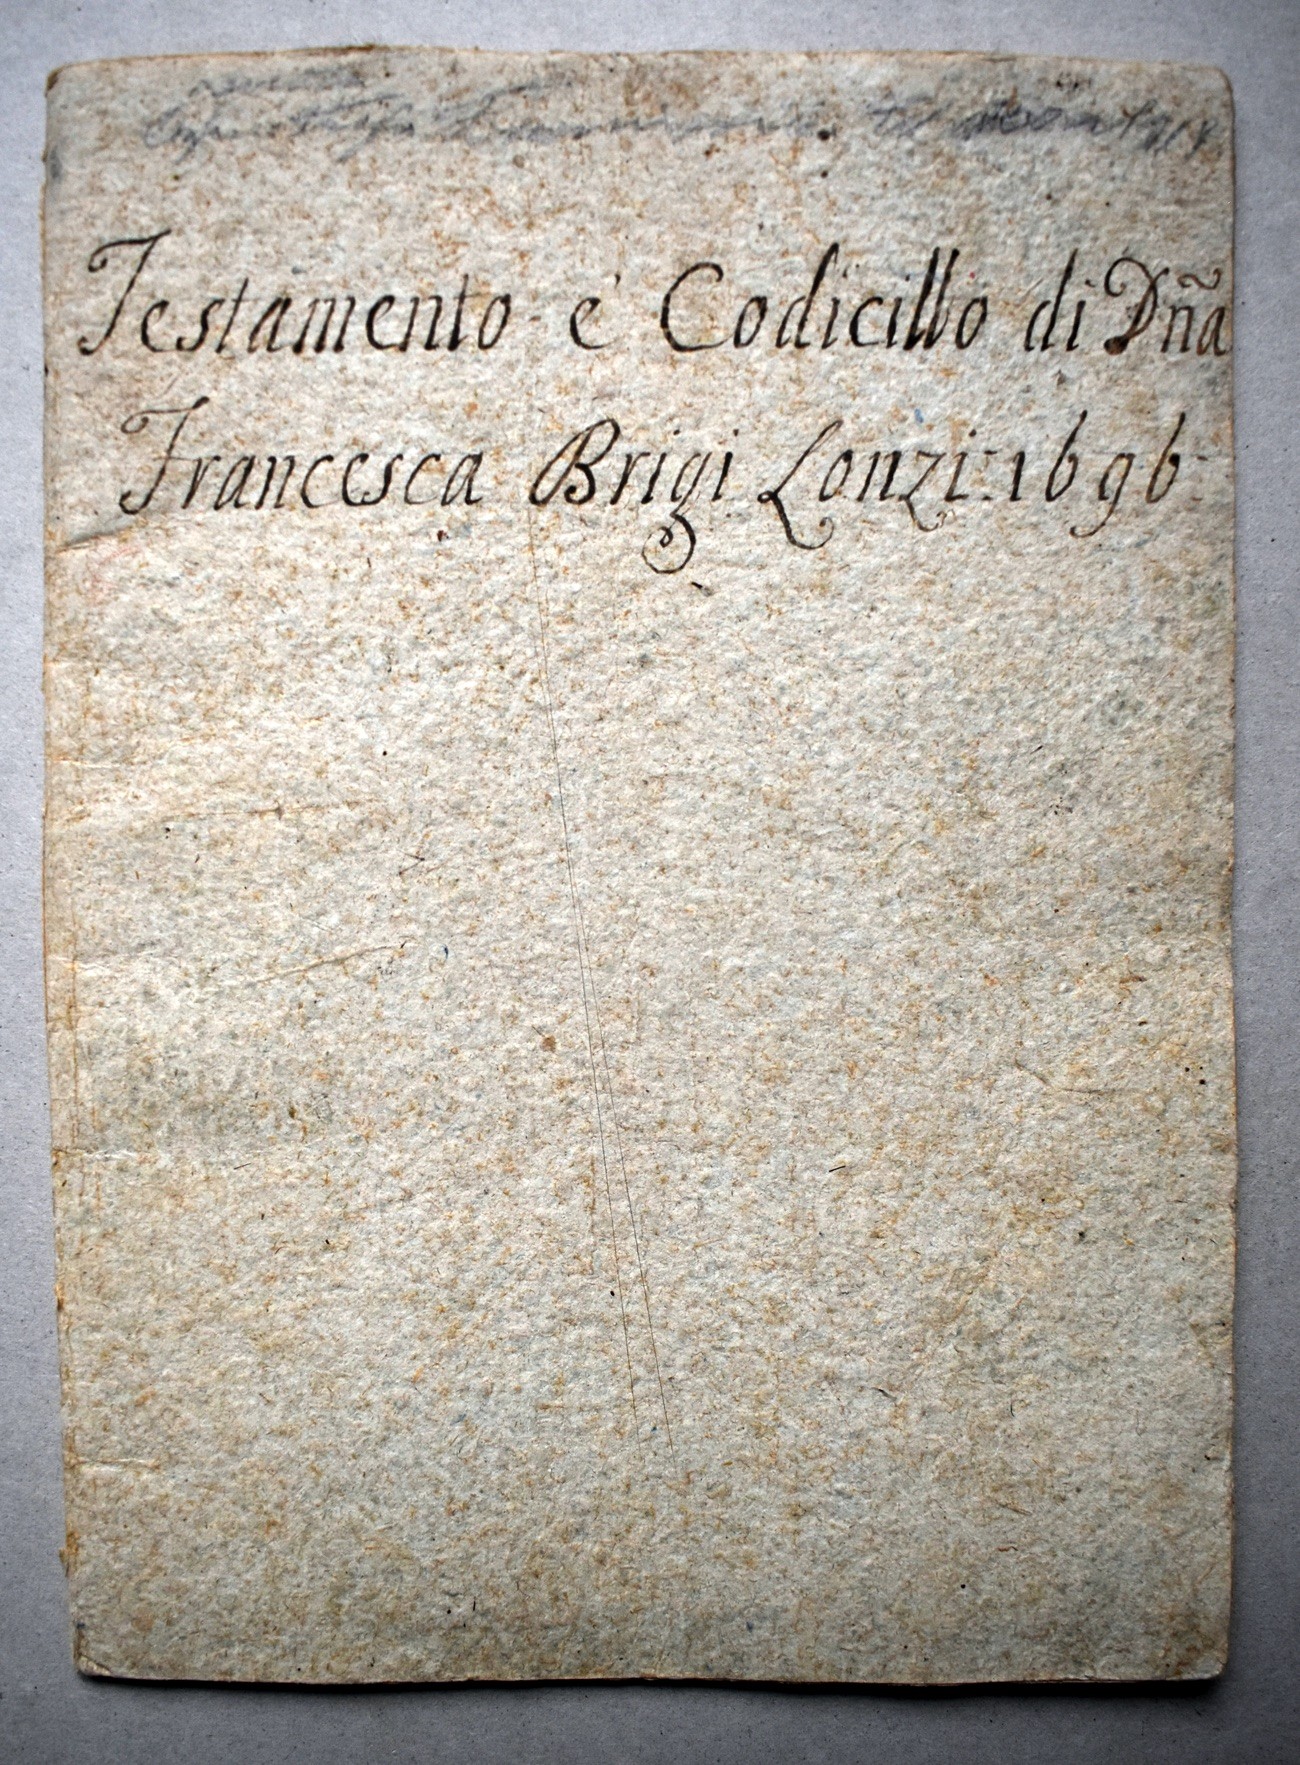 Testamento e' Codicillo di Dña
Francesca Brigi Lonzi: 1696